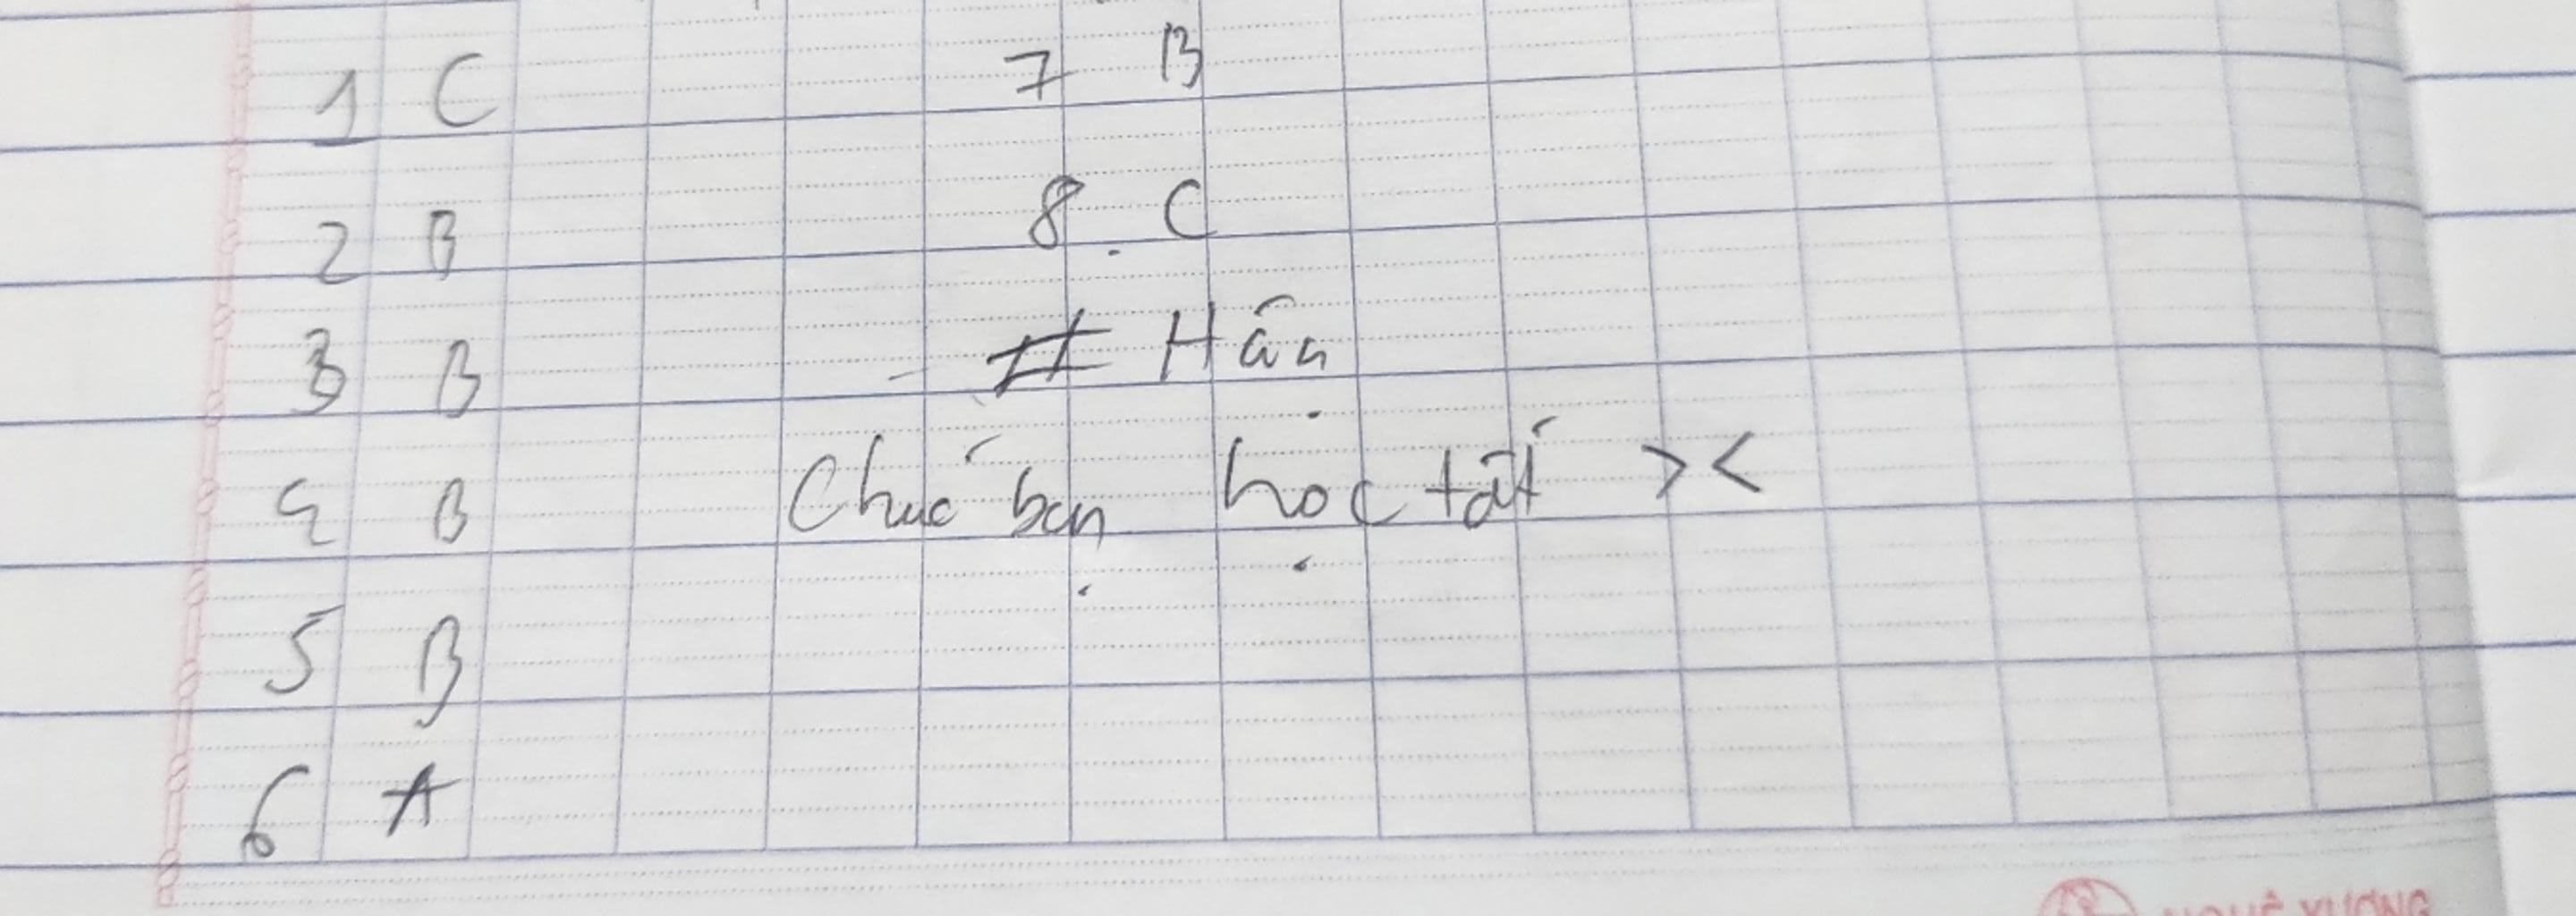 1 C
2 B
3 B
4 B
5 B
6 A
7 B
8. C
# Hân
Chúc bạn học tốt ><